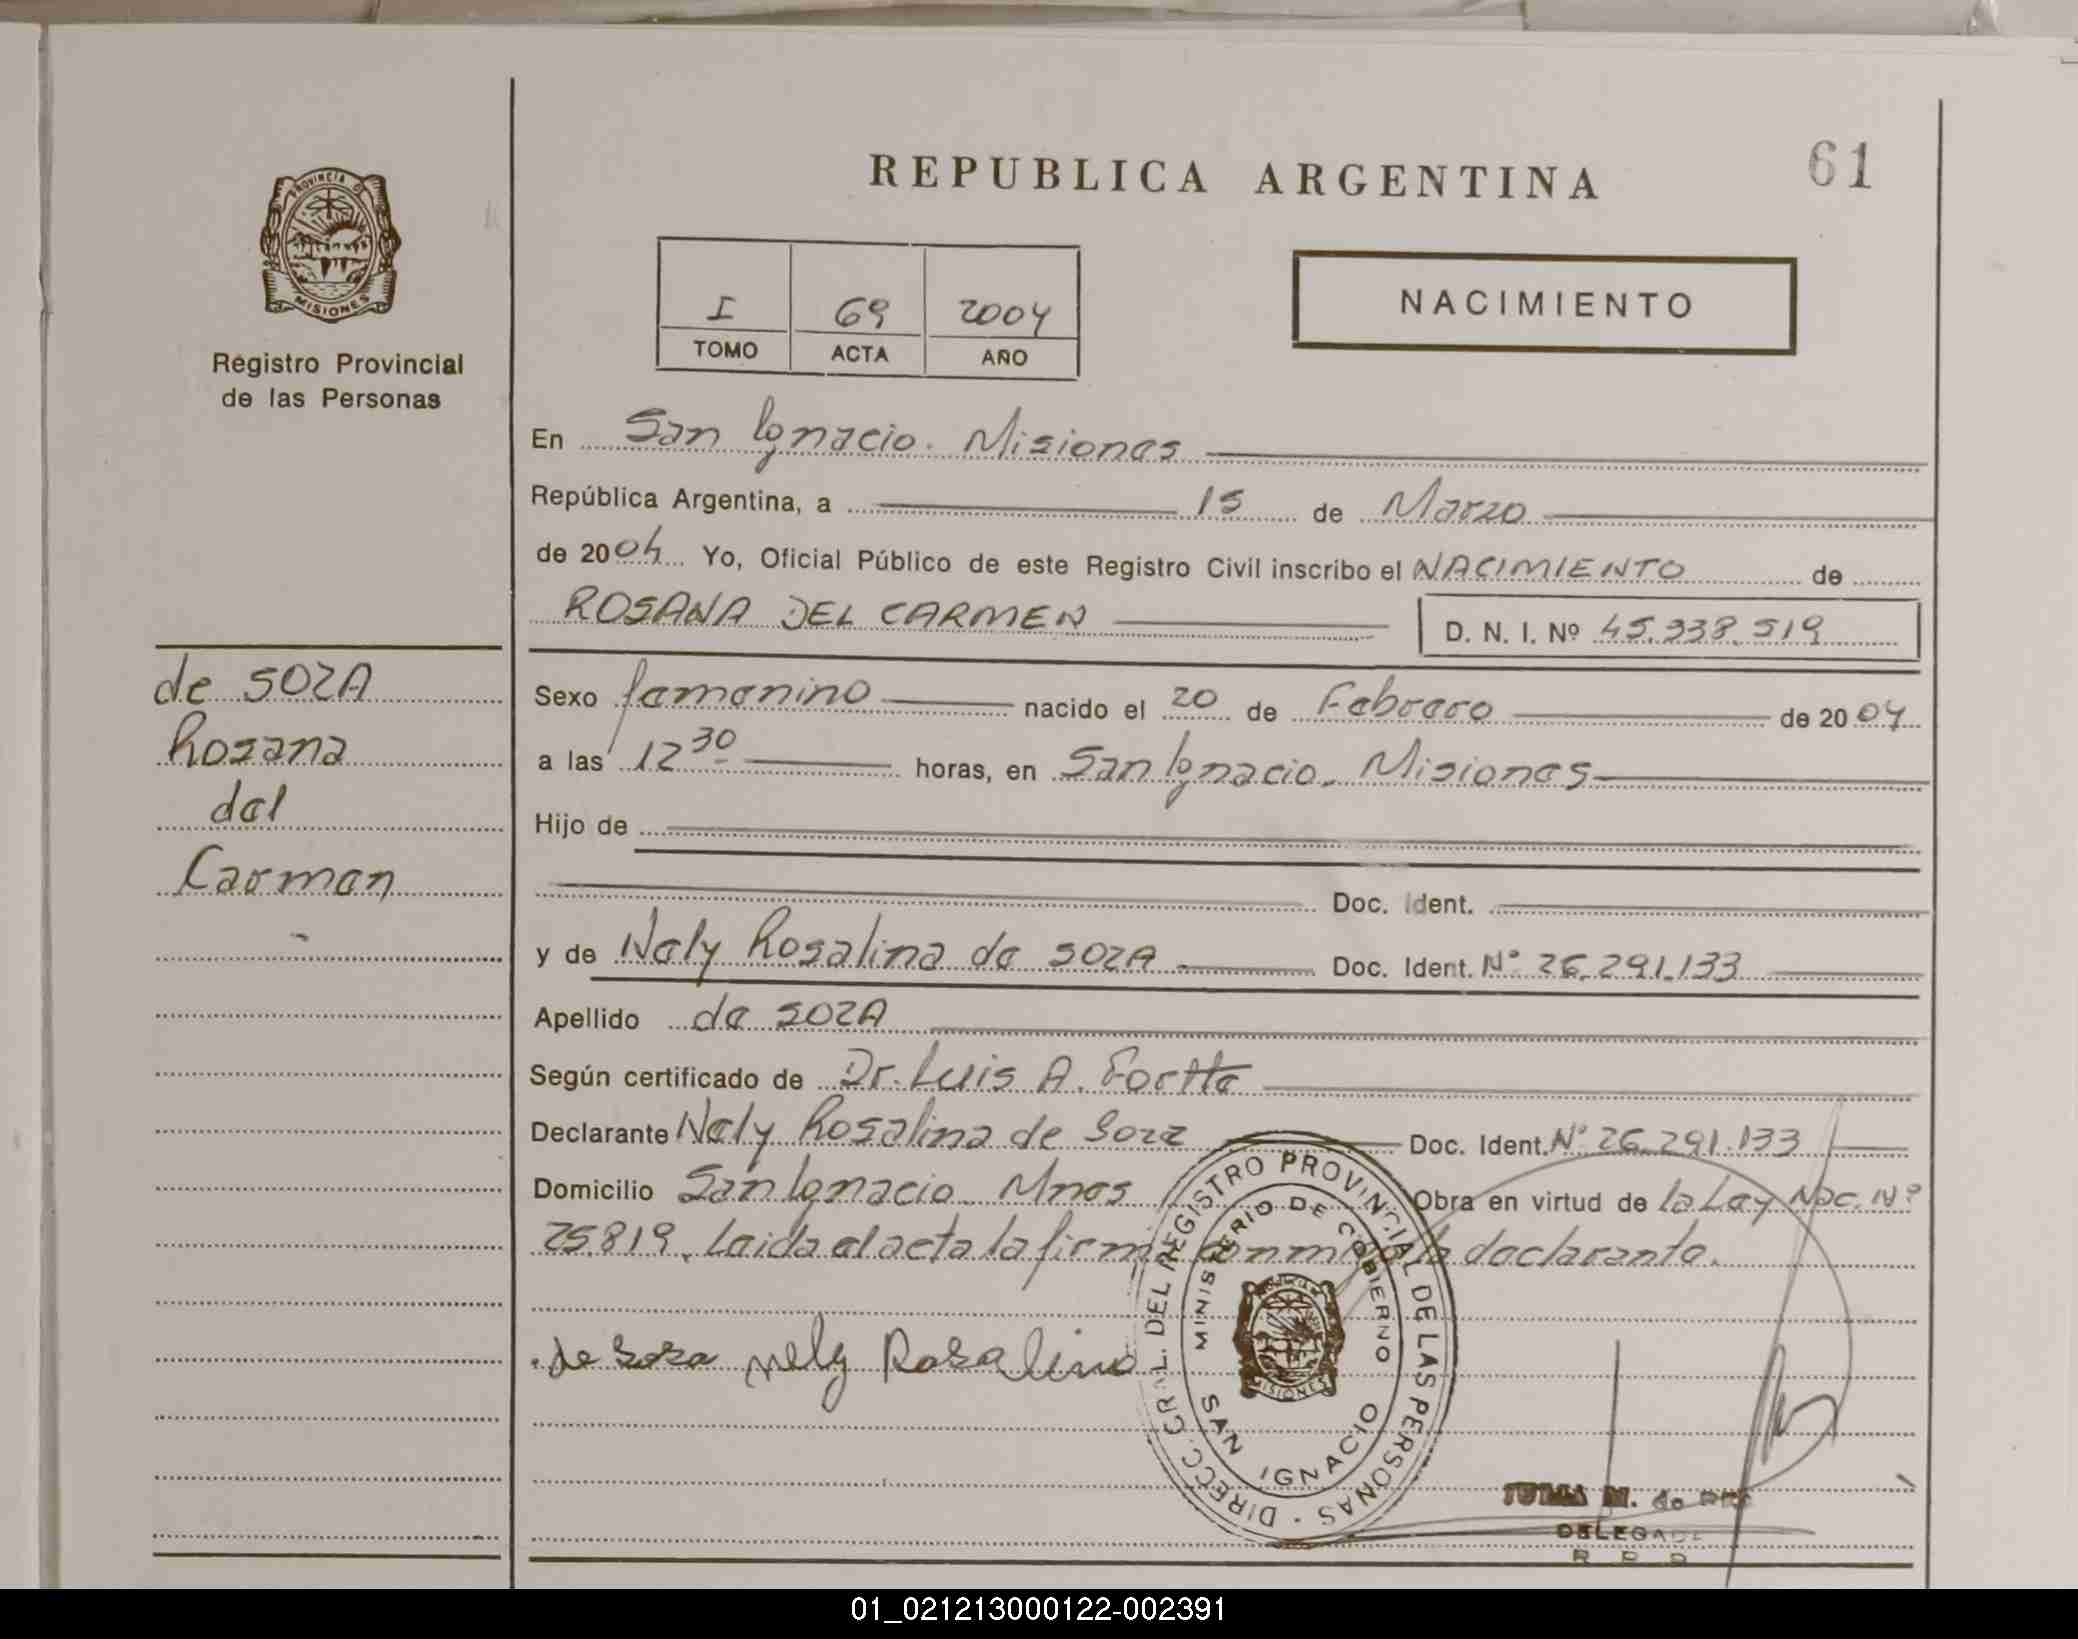 REPUBLICA ARGENTINA
61
PROVINCIA DE
MISIONES
Registro Provincial
de las Personas
I 69 2004
TOMO ACTA AÑO
NACIMIENTO
En San Ignacio. Misiones
República Argentina, a 15 de Marzo
de 2004 Yo, Oficial Público de este Registro Civil inscribo el NACIMIENTO de
ROSANA DEL CARMEN D. N. I. Nº 45.338.519
de SOZA
Rosana
del
Carmen
Sexo femenino nacido el 20 de Febrero de 2004
a las 12 30 horas, en San Ignacio. Misiones
Hijo de
Doc. Ident.
y de Nely Rosalina de SOZA Doc. Ident. Nº 26.291.133
Apellido de SOZA
Según certificado de Dr. Luis A.
Declarante Nely Rosalina de Soza Doc. Ident. Nº 26.291.133
Domicilio San Ignacio Mnes Obra en virtud de la Ley Nac. Nº
25.819. Leida el acta la firma conmigo la declarante.
de Soza Nely Rosalina
DIRECC. GRAL. DEL REGISTRO PROVINCIAL DE LAS PERSONAS
MINISTERIO DE GOBIERNO
MISIONES
SAN IGNACIO
M. de
DELEGADA
01_021213000122-002391